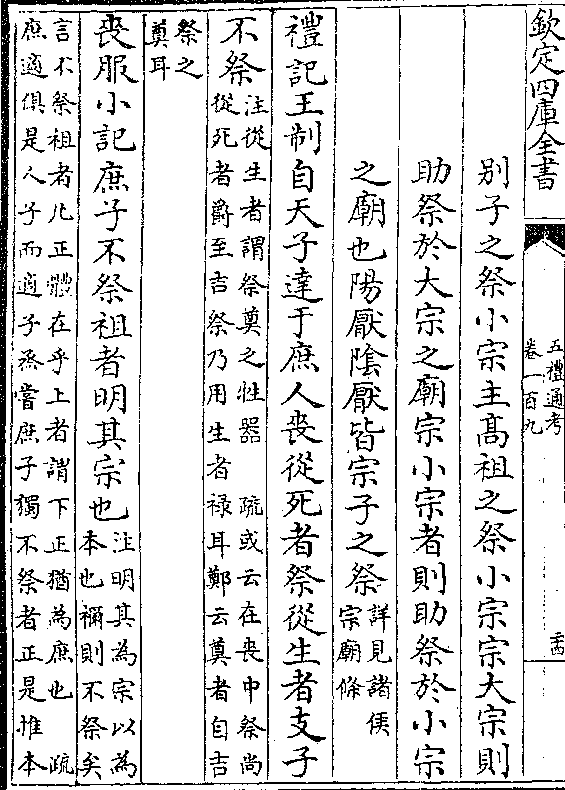 欽定四庫全書
五禮通考
卷一百九
別子之祭小宗主髙祖之祭小宗宗大宗則
助祭於大宗之廟宗小宗者則助祭於小宗
之廟也陽厭隂厭皆宗子之祭詳見諸侯
宗廟條
禮記王制自天子達于庶人喪從死者祭從生者支子
不祭注從生者謂祭奠之牲器 疏或云在喪中祭尚
從死者爵至吉祭乃用生者禄耳鄭云奠者自吉
祭之
奠耳
喪服小記庶子不祭祖者明其宗也注明其為宗以為
本也禰則不祭矣
言不祭祖者凡正體在乎上者謂下正猶為庶也 疏
庶適俱是人子而適子烝嘗庶子獨不祭者正是惟本